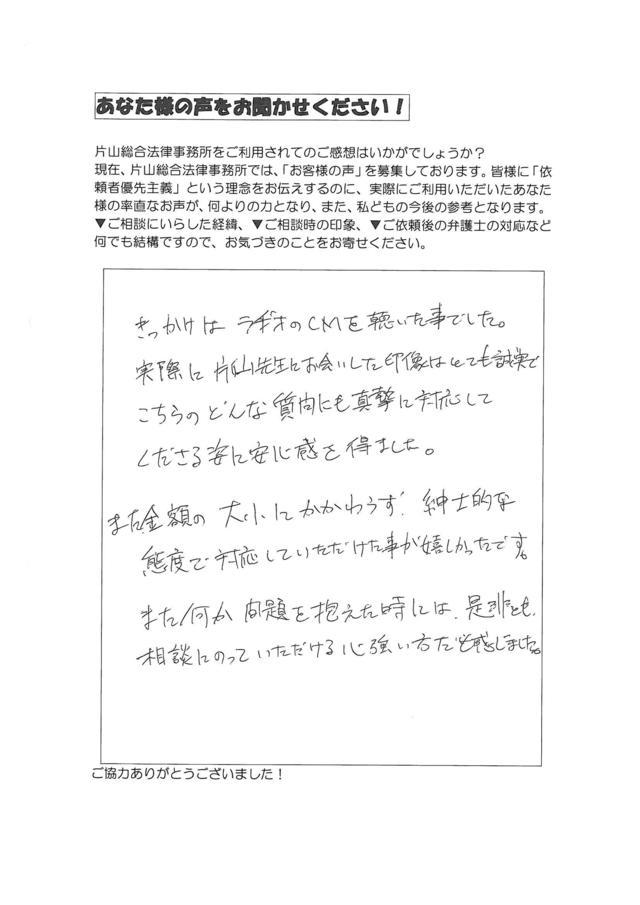 あなた様の声をお聞かせください！
片山総合法律事務所をご利用されてのご感想はいかがでしょうか？
現在、片山総合法律事務所では、「お客様の声」を募集しております。皆様に「依
頼者優先主義」という理念をお伝えするのに、実際にご利用いただいたあなた
様の率直なお声が、何よりの力となり、また、私どもの今後の参考となります。
▼ご相談にいらした経緯、▼ご相談時の印象、▼ご依頼後の弁護士の対応など
何でも結構ですので、お気づきのことをお寄せください。
きっかけは ラジオのCMを聴いた事でした。
実際に 片山先生にお会いした印象はとても誠実で
こちらのどんな質問にも真摯に対応して
くださる姿に安心感を得ました。
また金額の 大小にかかわらず、紳士的な
態度で対応していただけた事が嬉しかったです。
また何か 問題を抱えた時には、是非とも、
相談にのっていただける心強い方だと感じました。
ご協力ありがとうございました！